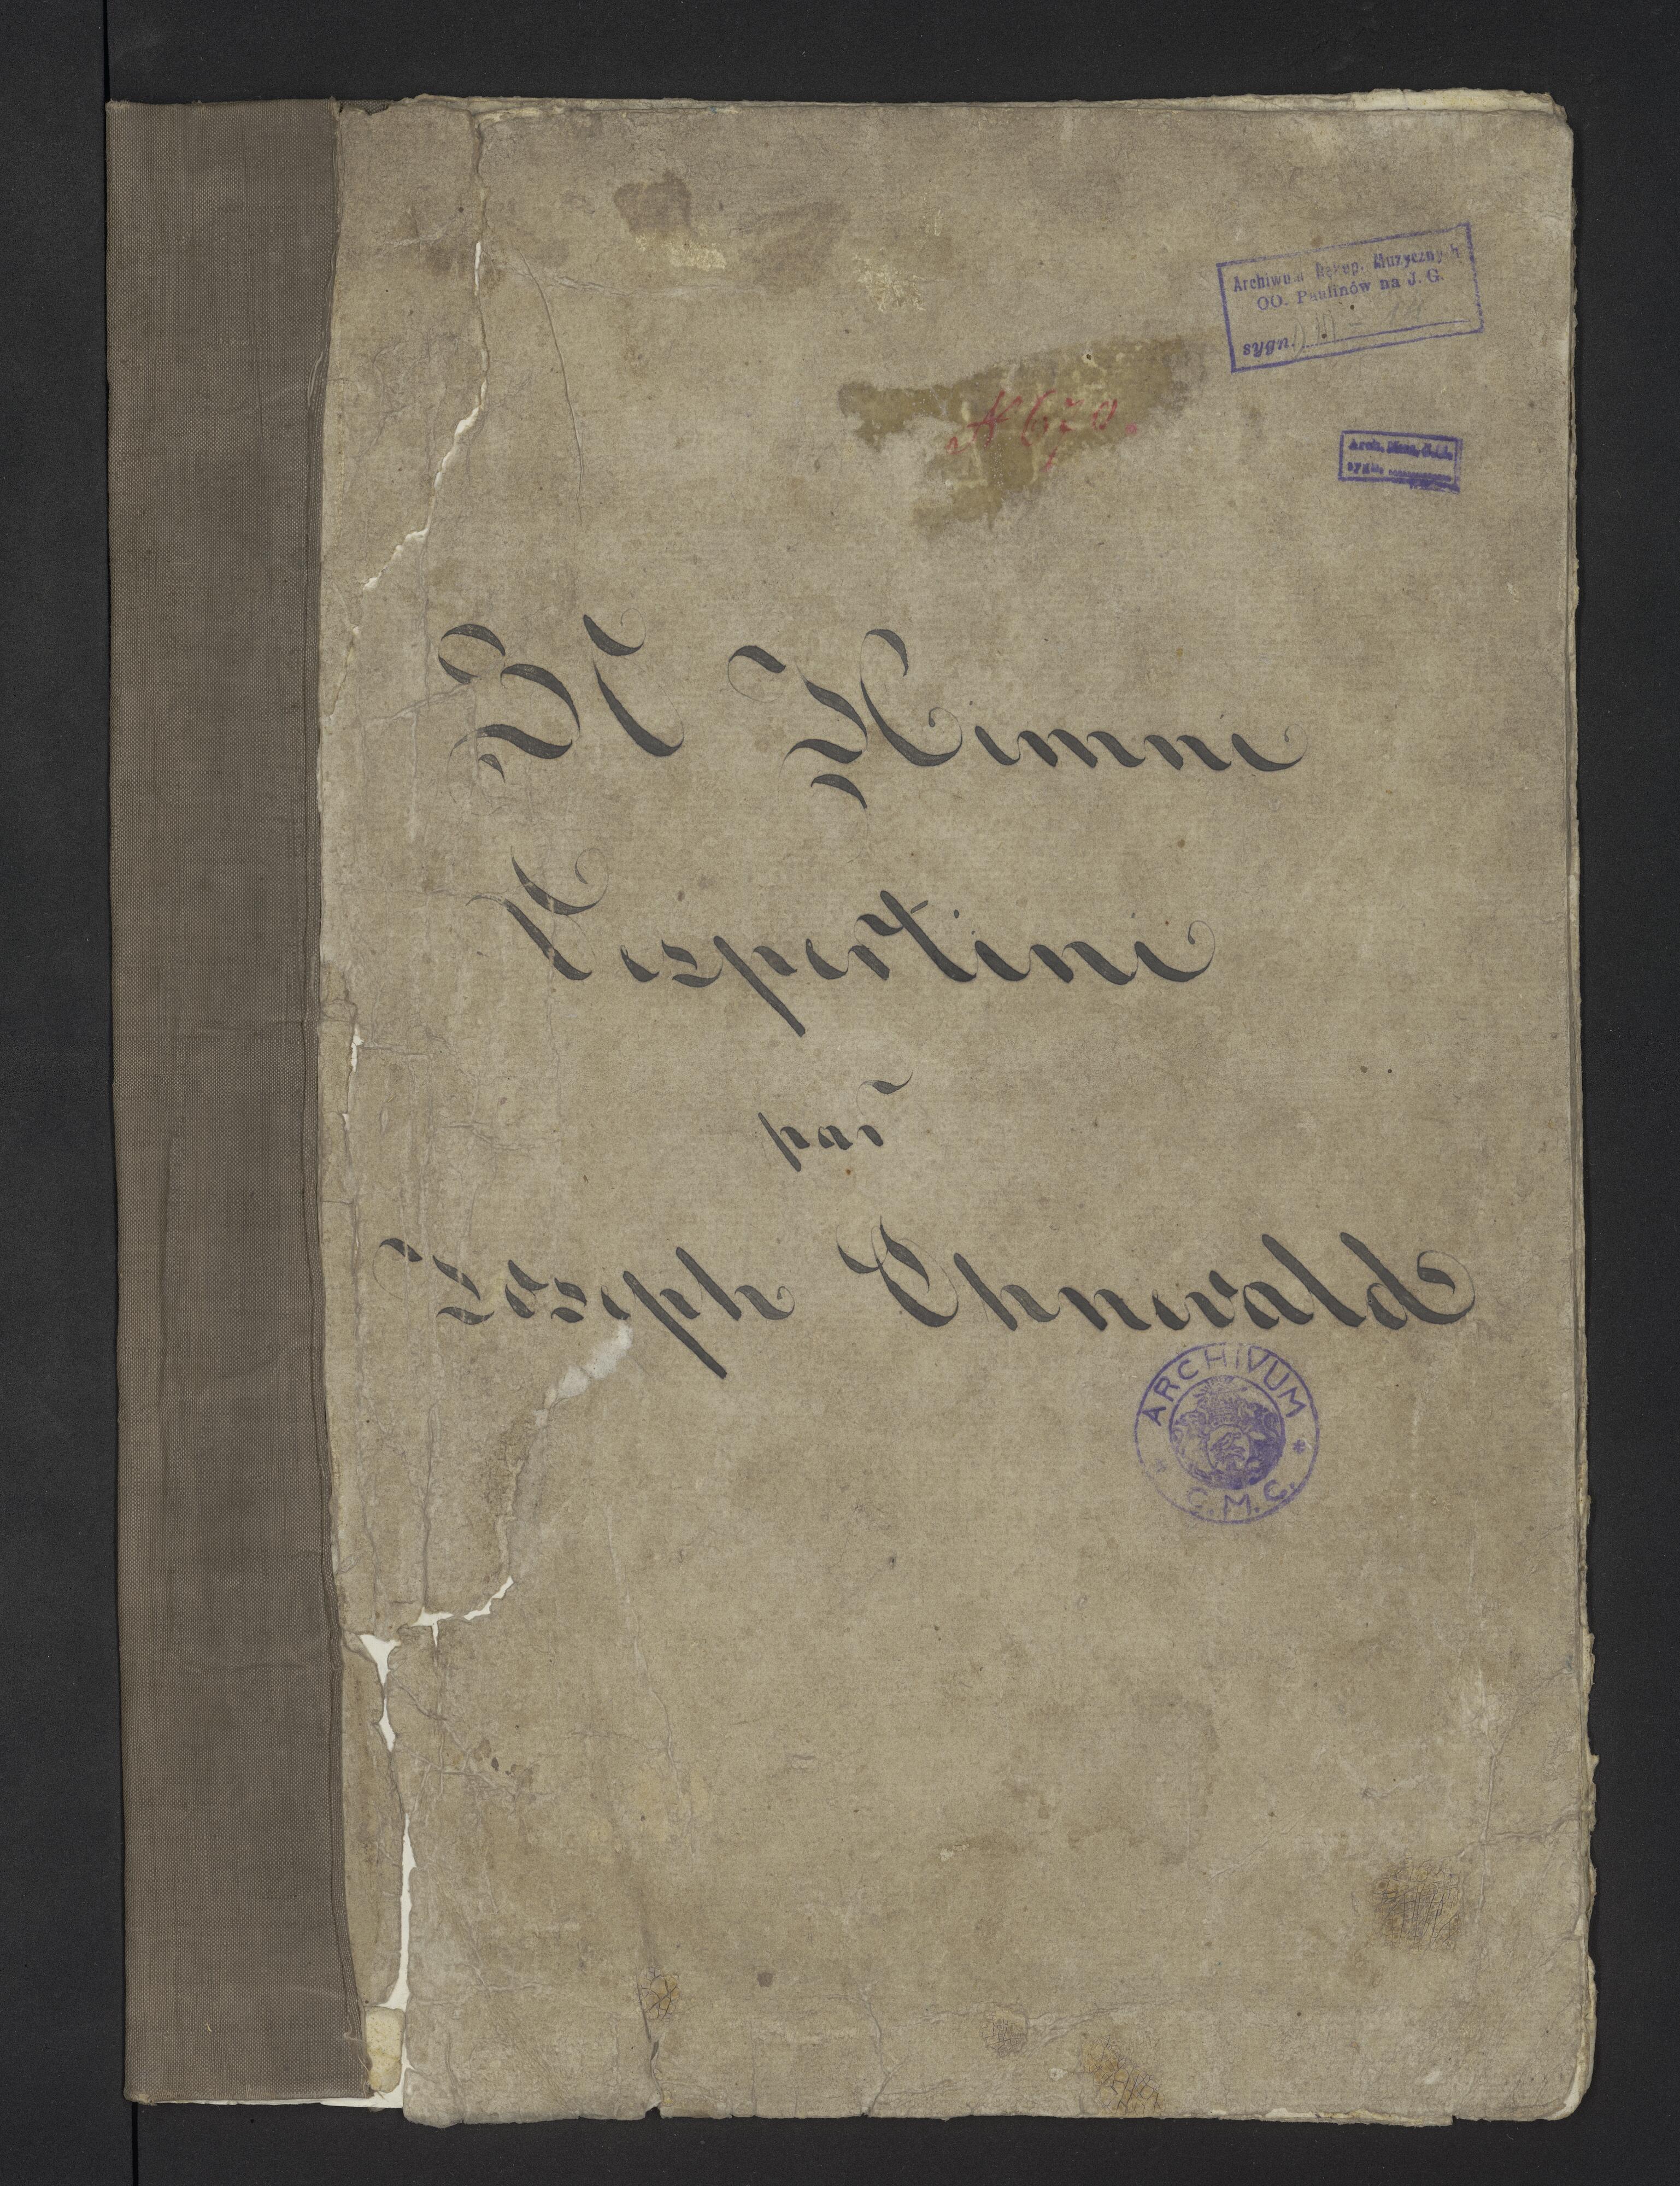 Archiwum Rękop. Muzycznych
OO. Paulinów na J. G.
sygn. III -
№ 670.
Arch. Muz. G.M.
sygn.
XI Himni
Vespertini
par
Joseph Ehnewald
ARCHIVUM
C. M. C.